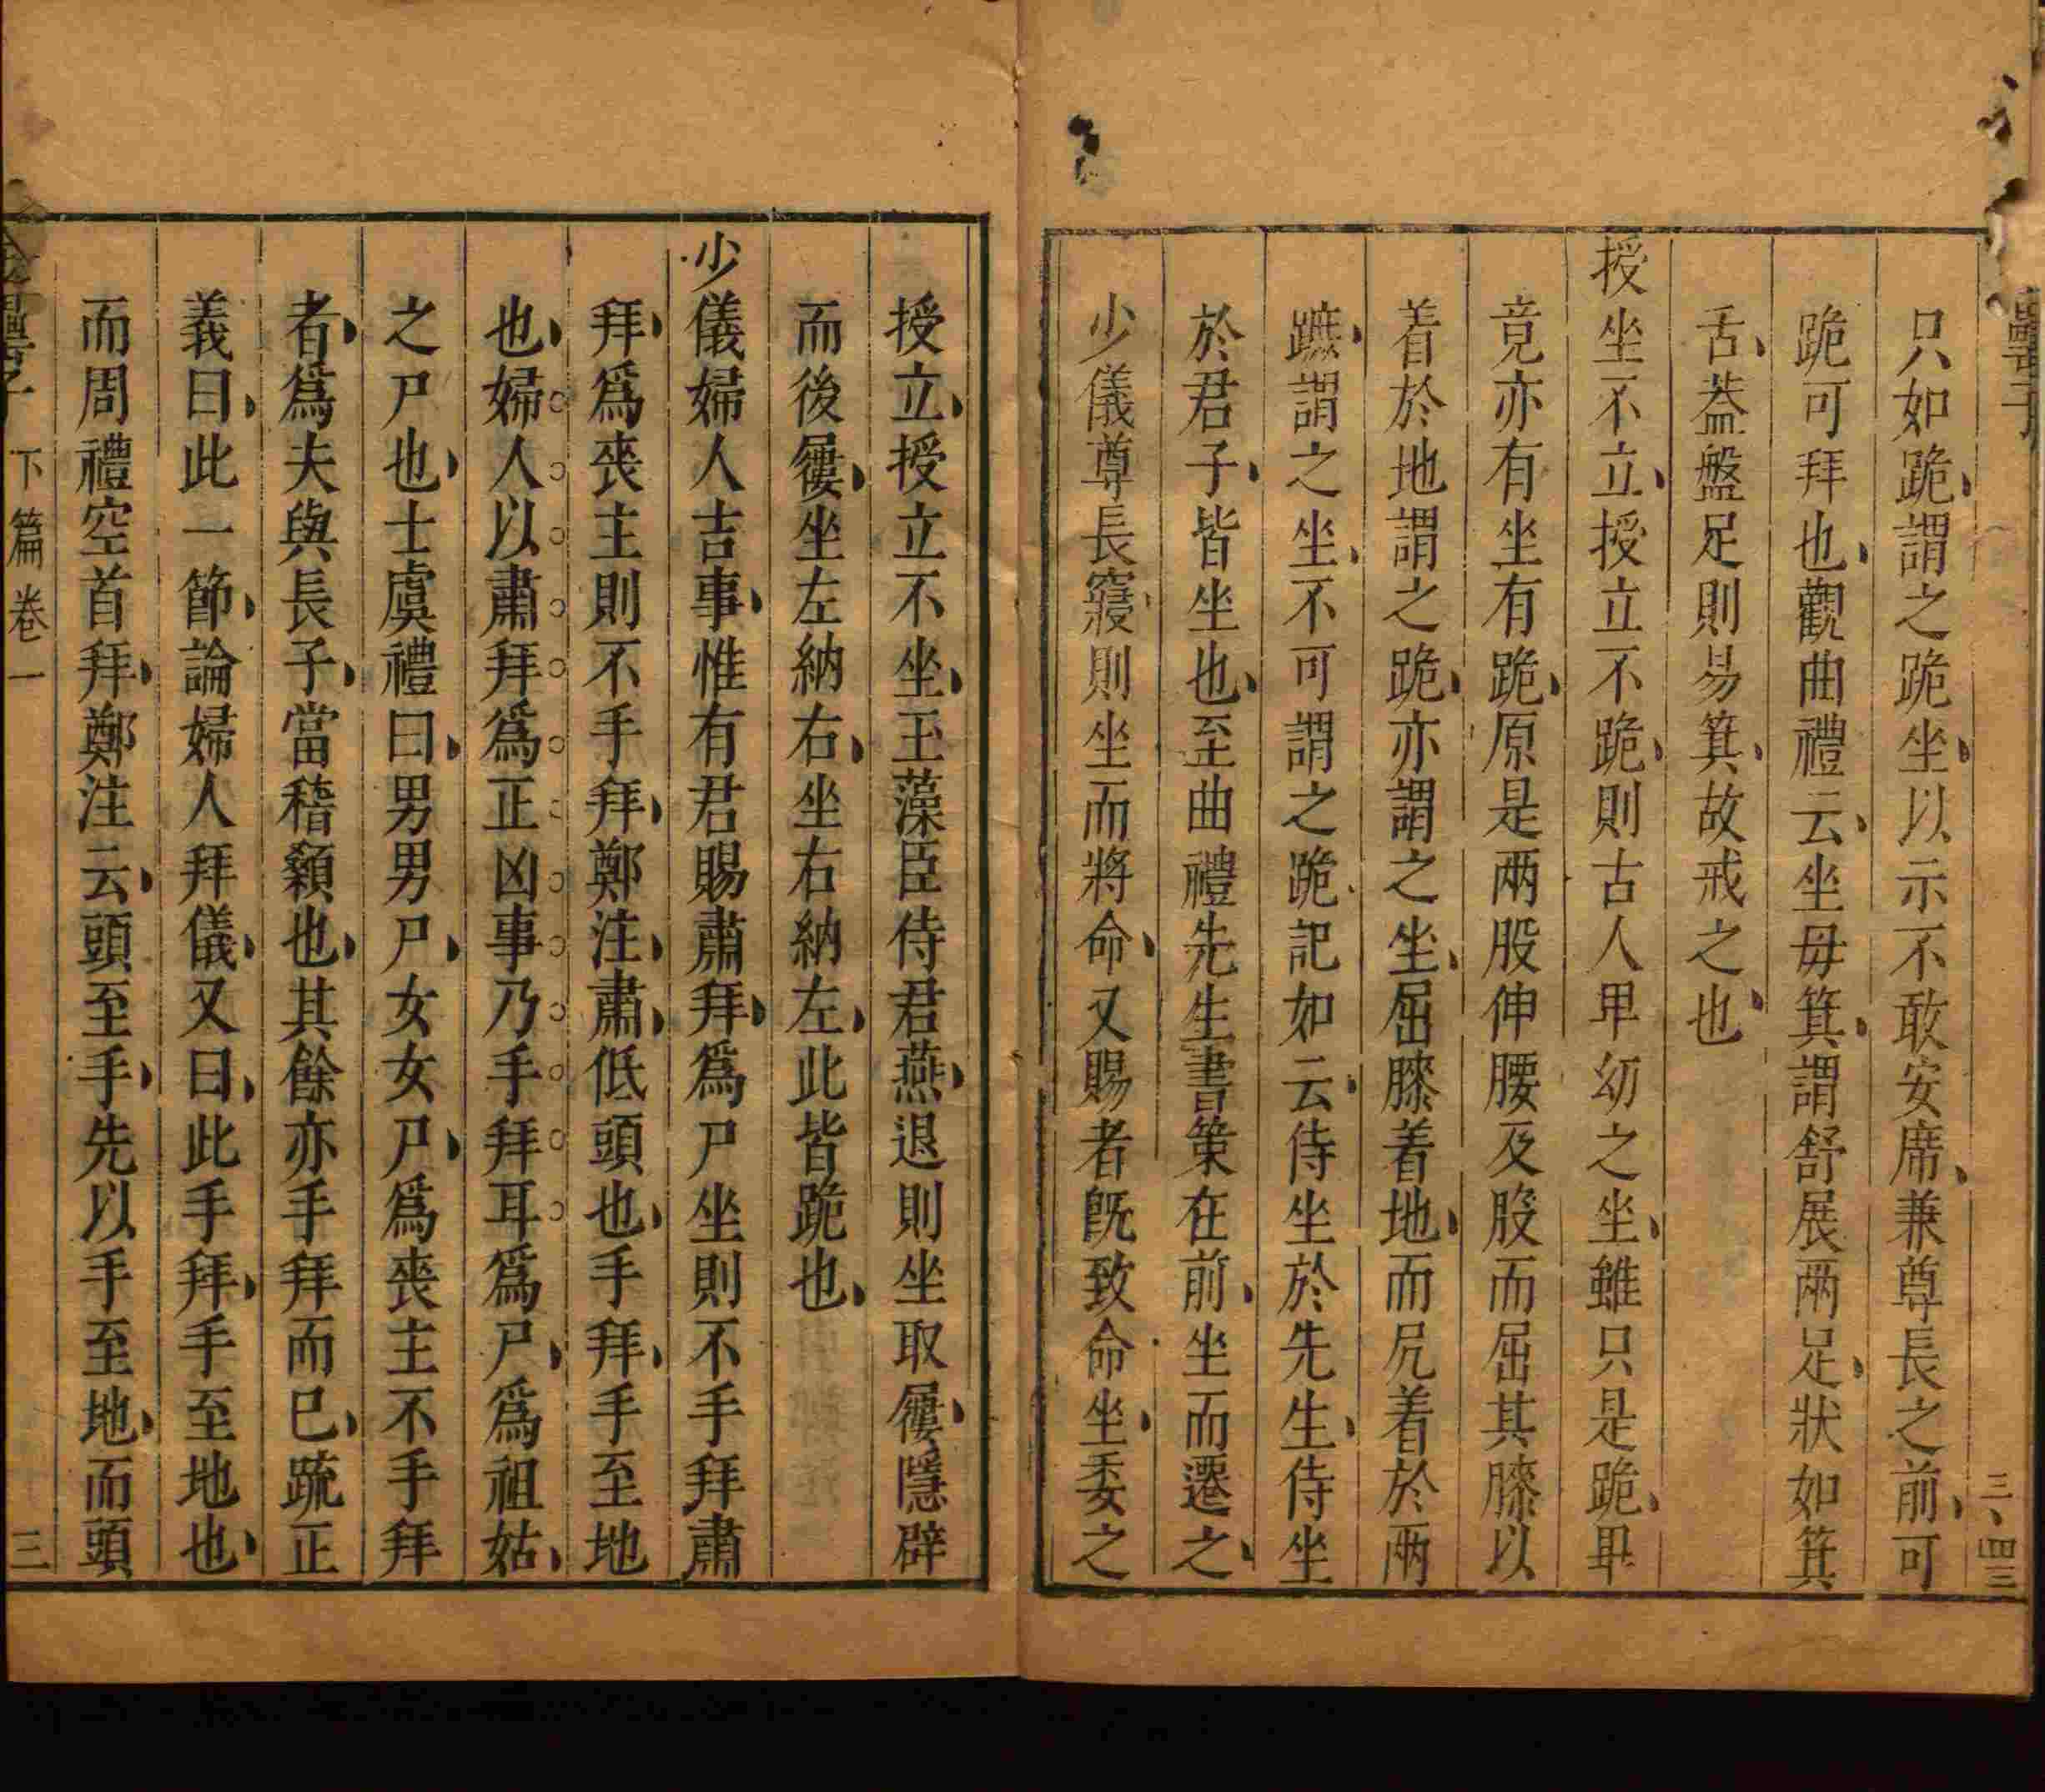 只如跪謂之跪坐以示不敢安席兼尊長之前可
跪可拜也觀曲禮云坐毋箕謂舒展兩足狀如箕
舌葢盤足則易箕故戒之也
授坐不立授立不跪則古人卑幼之坐雖只是跪畢
竟亦有坐有跪原是兩股伸腰及股而屈其膝以
着於地謂之跪亦謂之坐屈膝着地而尻着於兩
蹠謂之坐不可謂之跪記如云侍坐於先生侍坐
於君子皆坐也至曲禮先生書策在前坐而遷之
少儀尊長寢則坐而將命又賜者旣致命坐委之
授立授立不坐玉藻臣侍君燕退則坐取屨隱辟
而後屨坐左納右坐右納左此皆跪也
少儀婦人吉事惟有君賜肅拜爲尸坐則不手拜肅
拜爲喪主則不手拜鄭注肅低頭也手拜手至地
也婦人以肅拜爲正凶事乃手拜耳爲尸爲祖姑
之尸也士虞禮曰男男尸女女尸爲喪主不手拜
者爲夫與長子當稽顙也其餘亦手拜而已疏正
義曰此一節論婦人拜儀又曰此手拜手至地也
而周禮空首拜鄭注云頭至手先以手至地而頭
下篇卷一 三